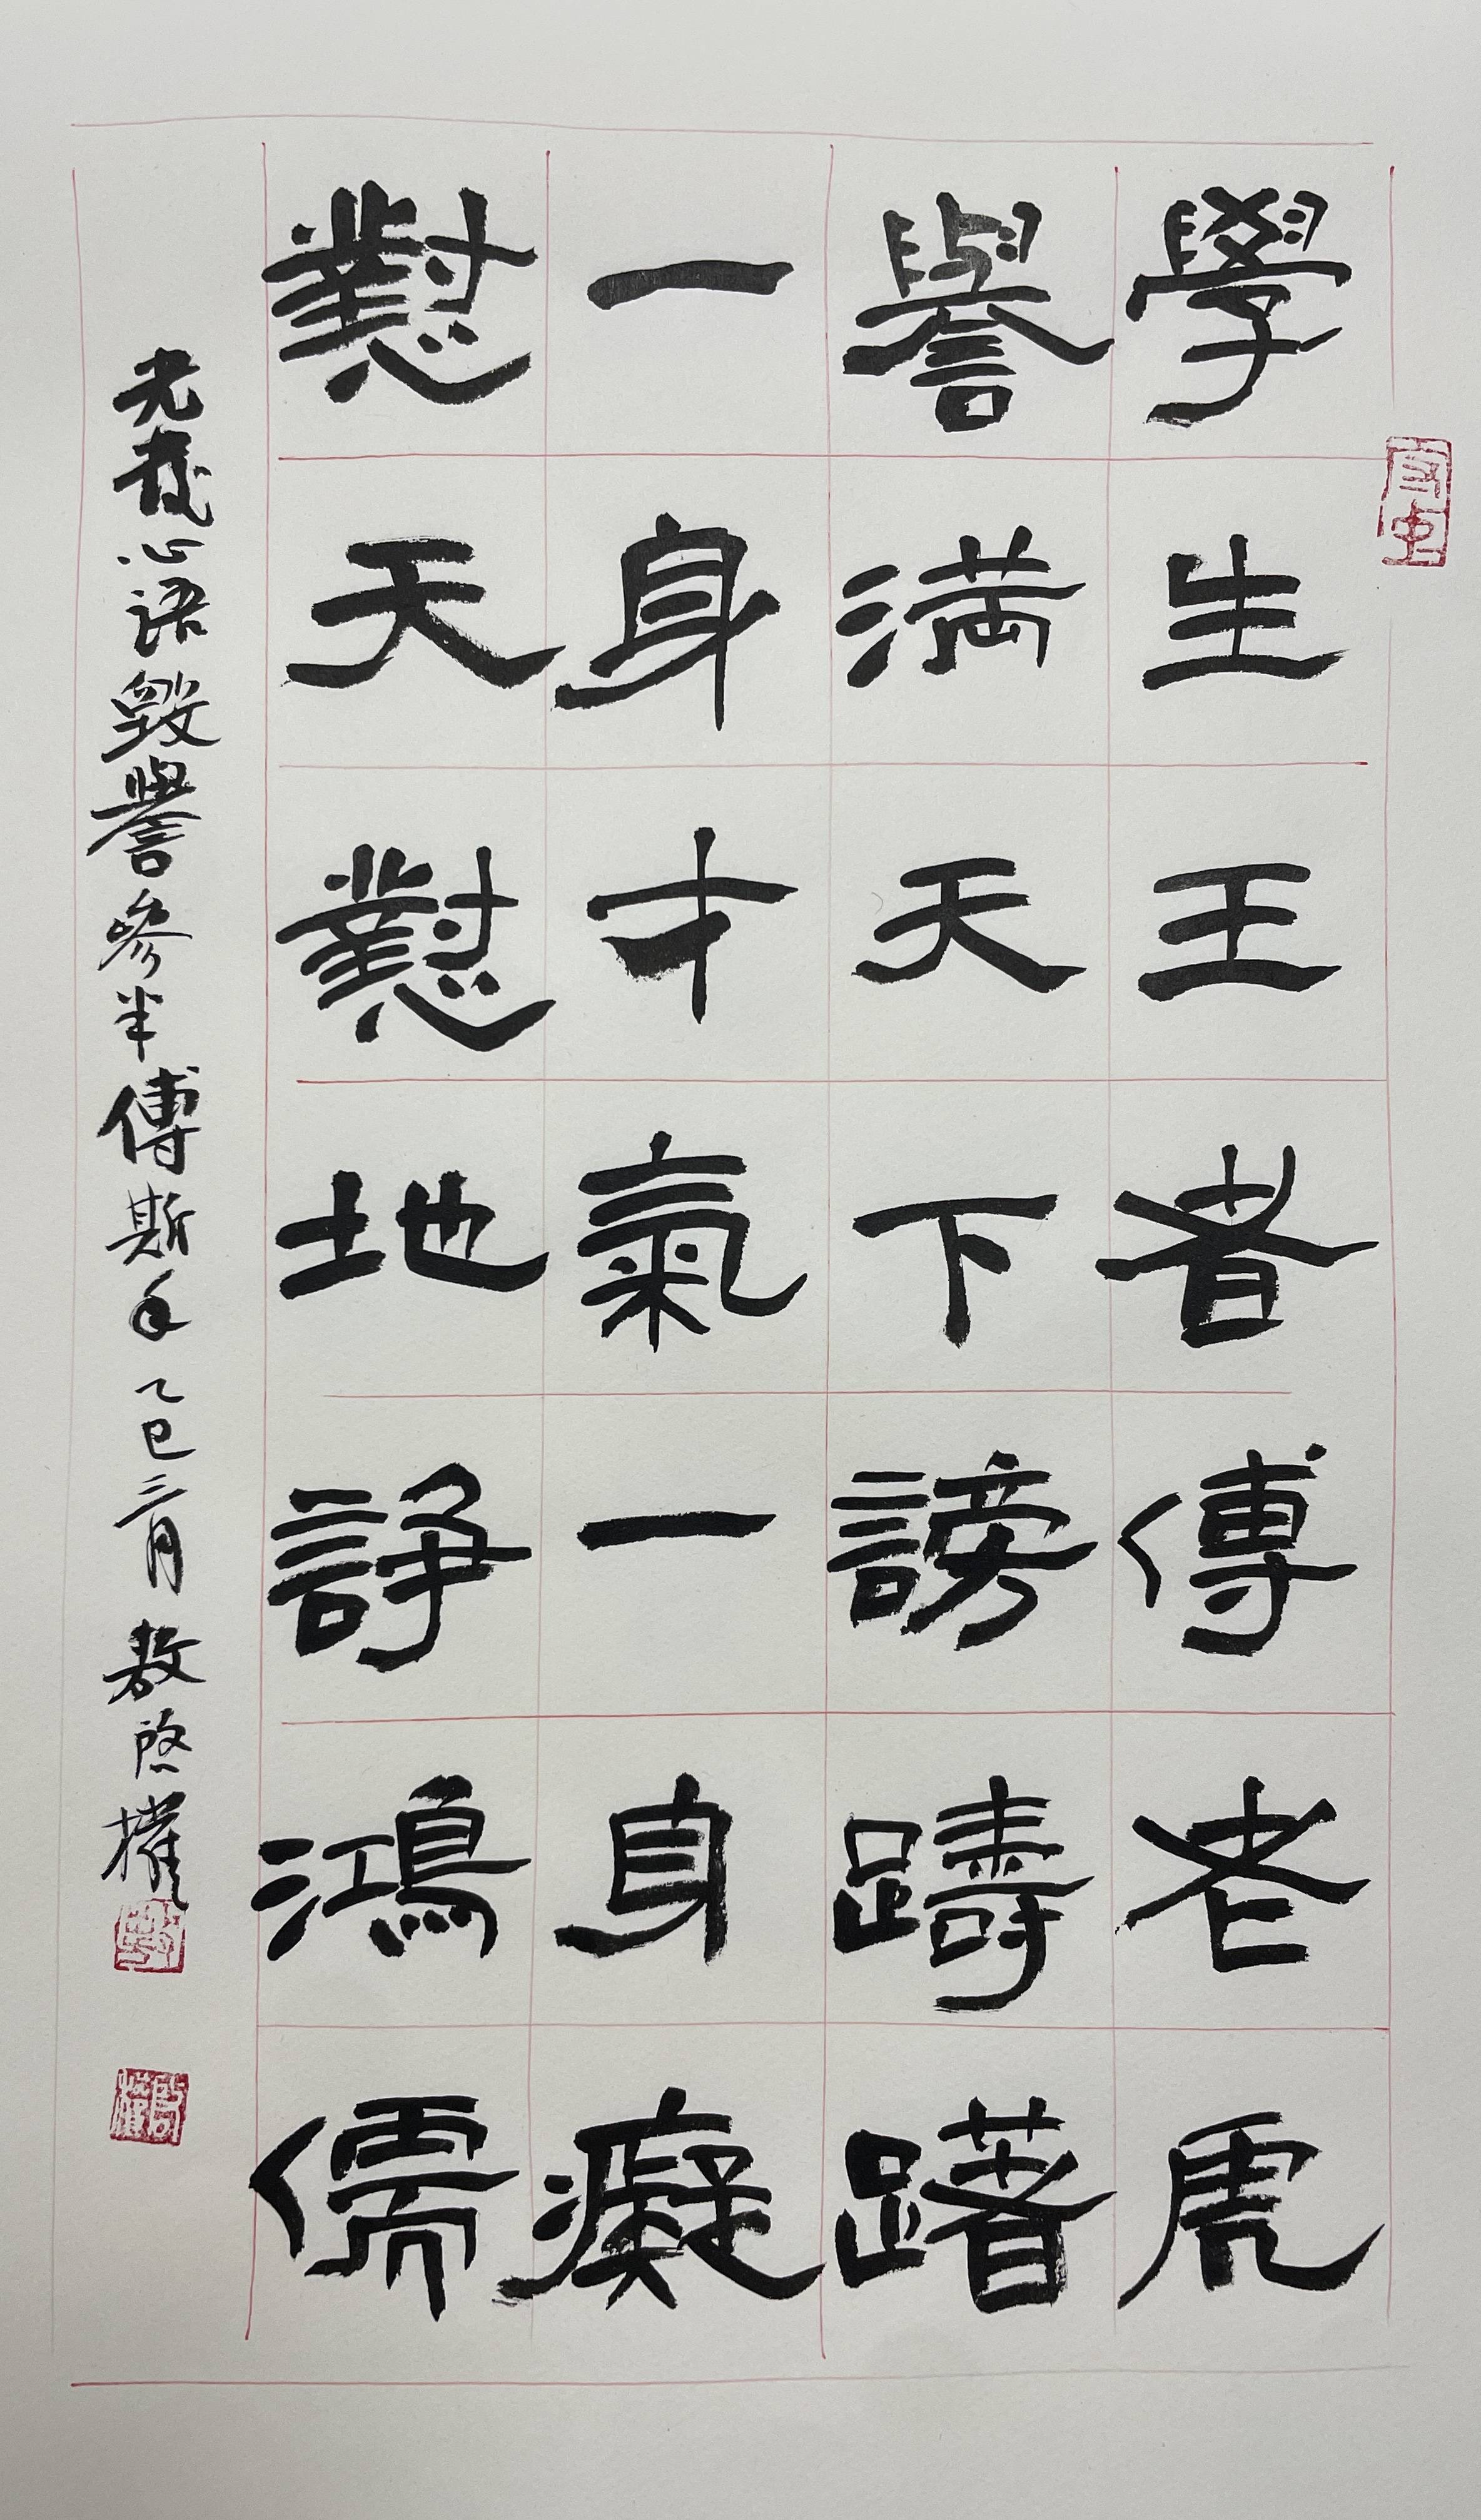 學生王者傅老虎
譽滿天下謗躊躇
一身才氣一身癡
懟天懟地諍鴻儒
光義心語毀譽參半傅斯年乙巳三月敖啓權